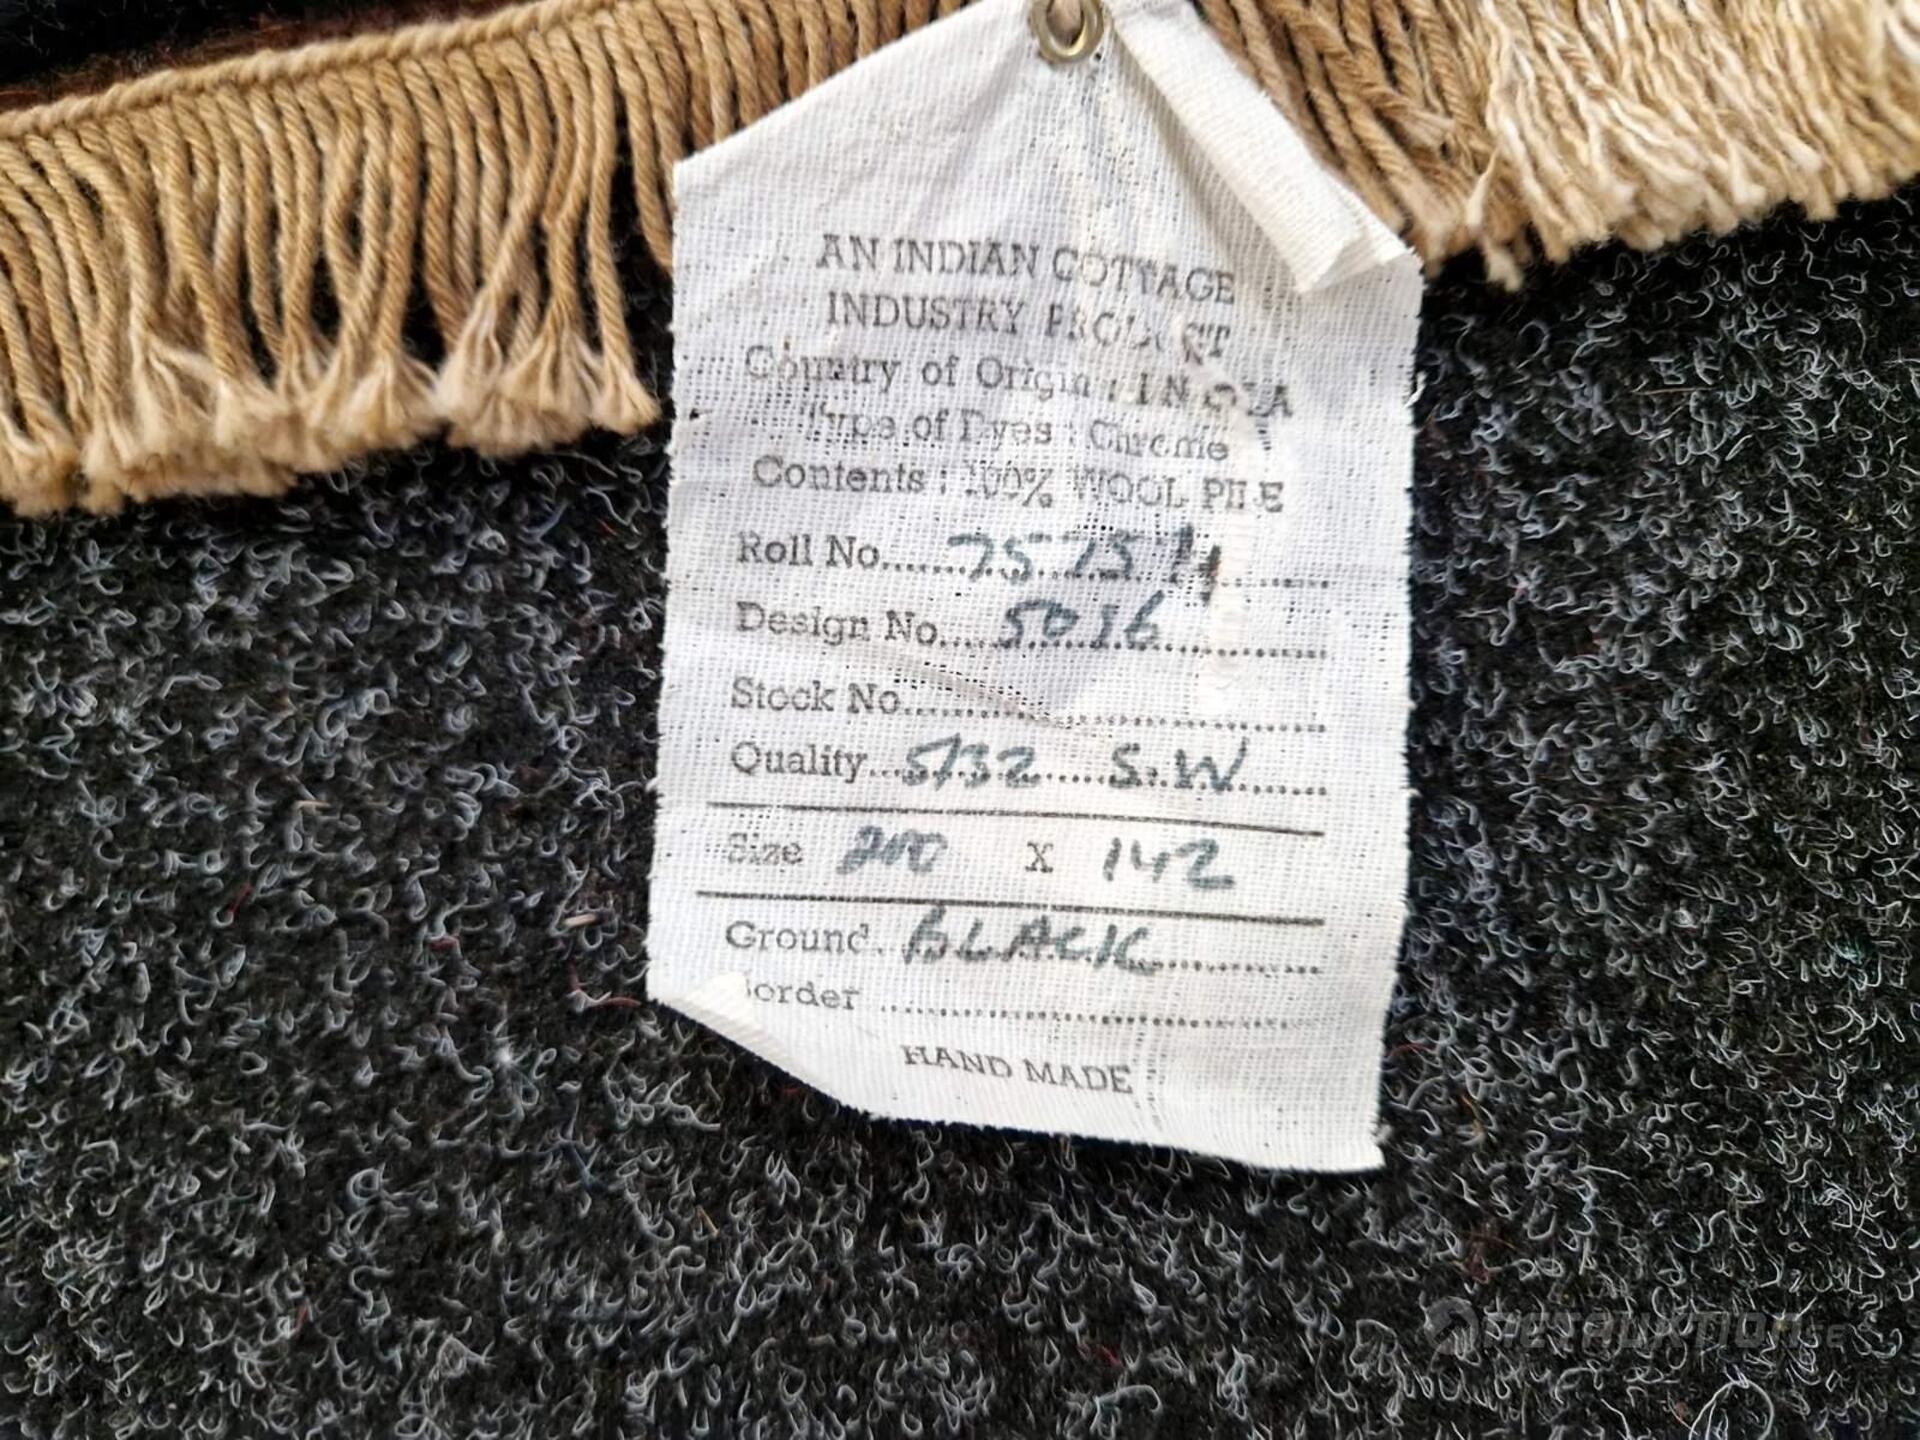 AN INDIAN COTTAGE
INDUSTRY PRODUCT
Country of Origin : INDIA
Type of Dyes : Chrome
Contents : 100% WOOL PILE
Roll No.
Design No. 5036
Stock No.
Quality 5/32 S.W
Size 200 X 142
Ground BLACK
Border
HAND MADE
NETAUKTION.SE